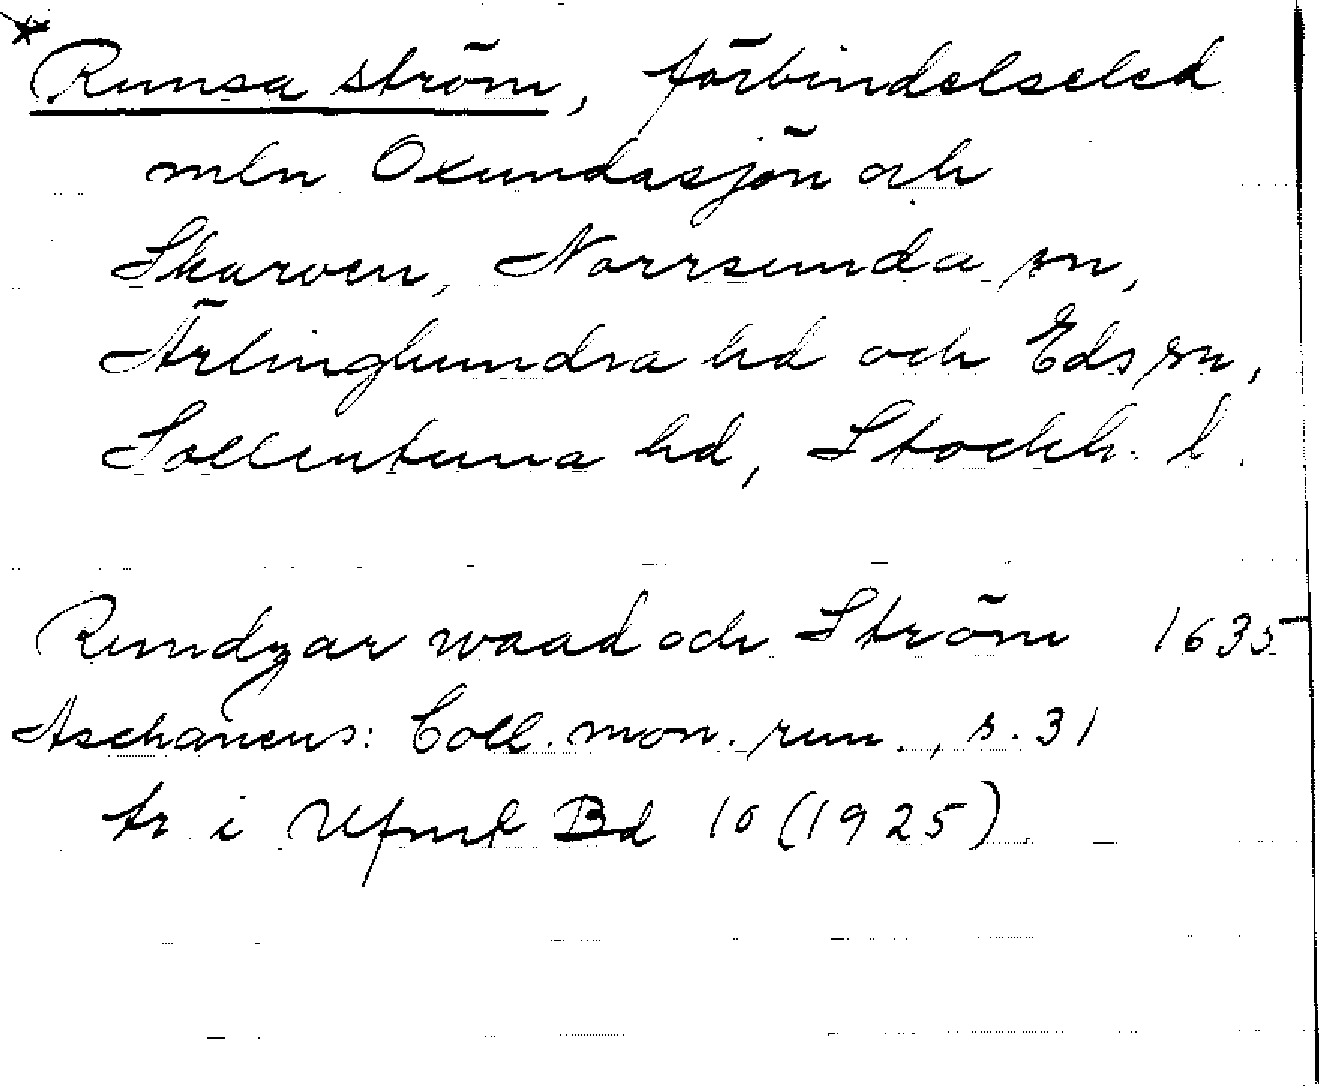 * Runsa ström, förbindelseled
mln Oxundasjön och
Skarven, Norrsunda sn,
Ärlinghundra hd och Eds sn,
Sollentuna hd, Stockh. l.
Rundzar waad och Ström 1635
Aschaneus: Coll. mon. run., s. 31
tr i Ufmf Bd 10 (1925)